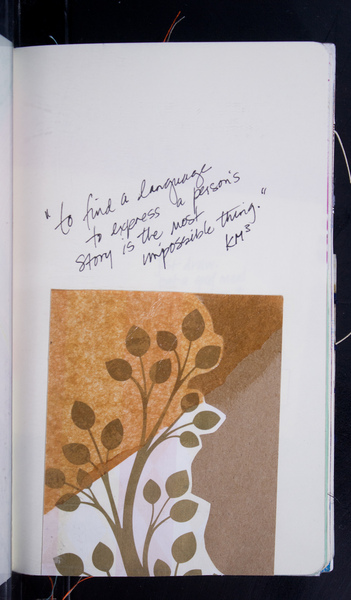 "to find a language
to express a person's
story is the most
impossible thing."
KM³